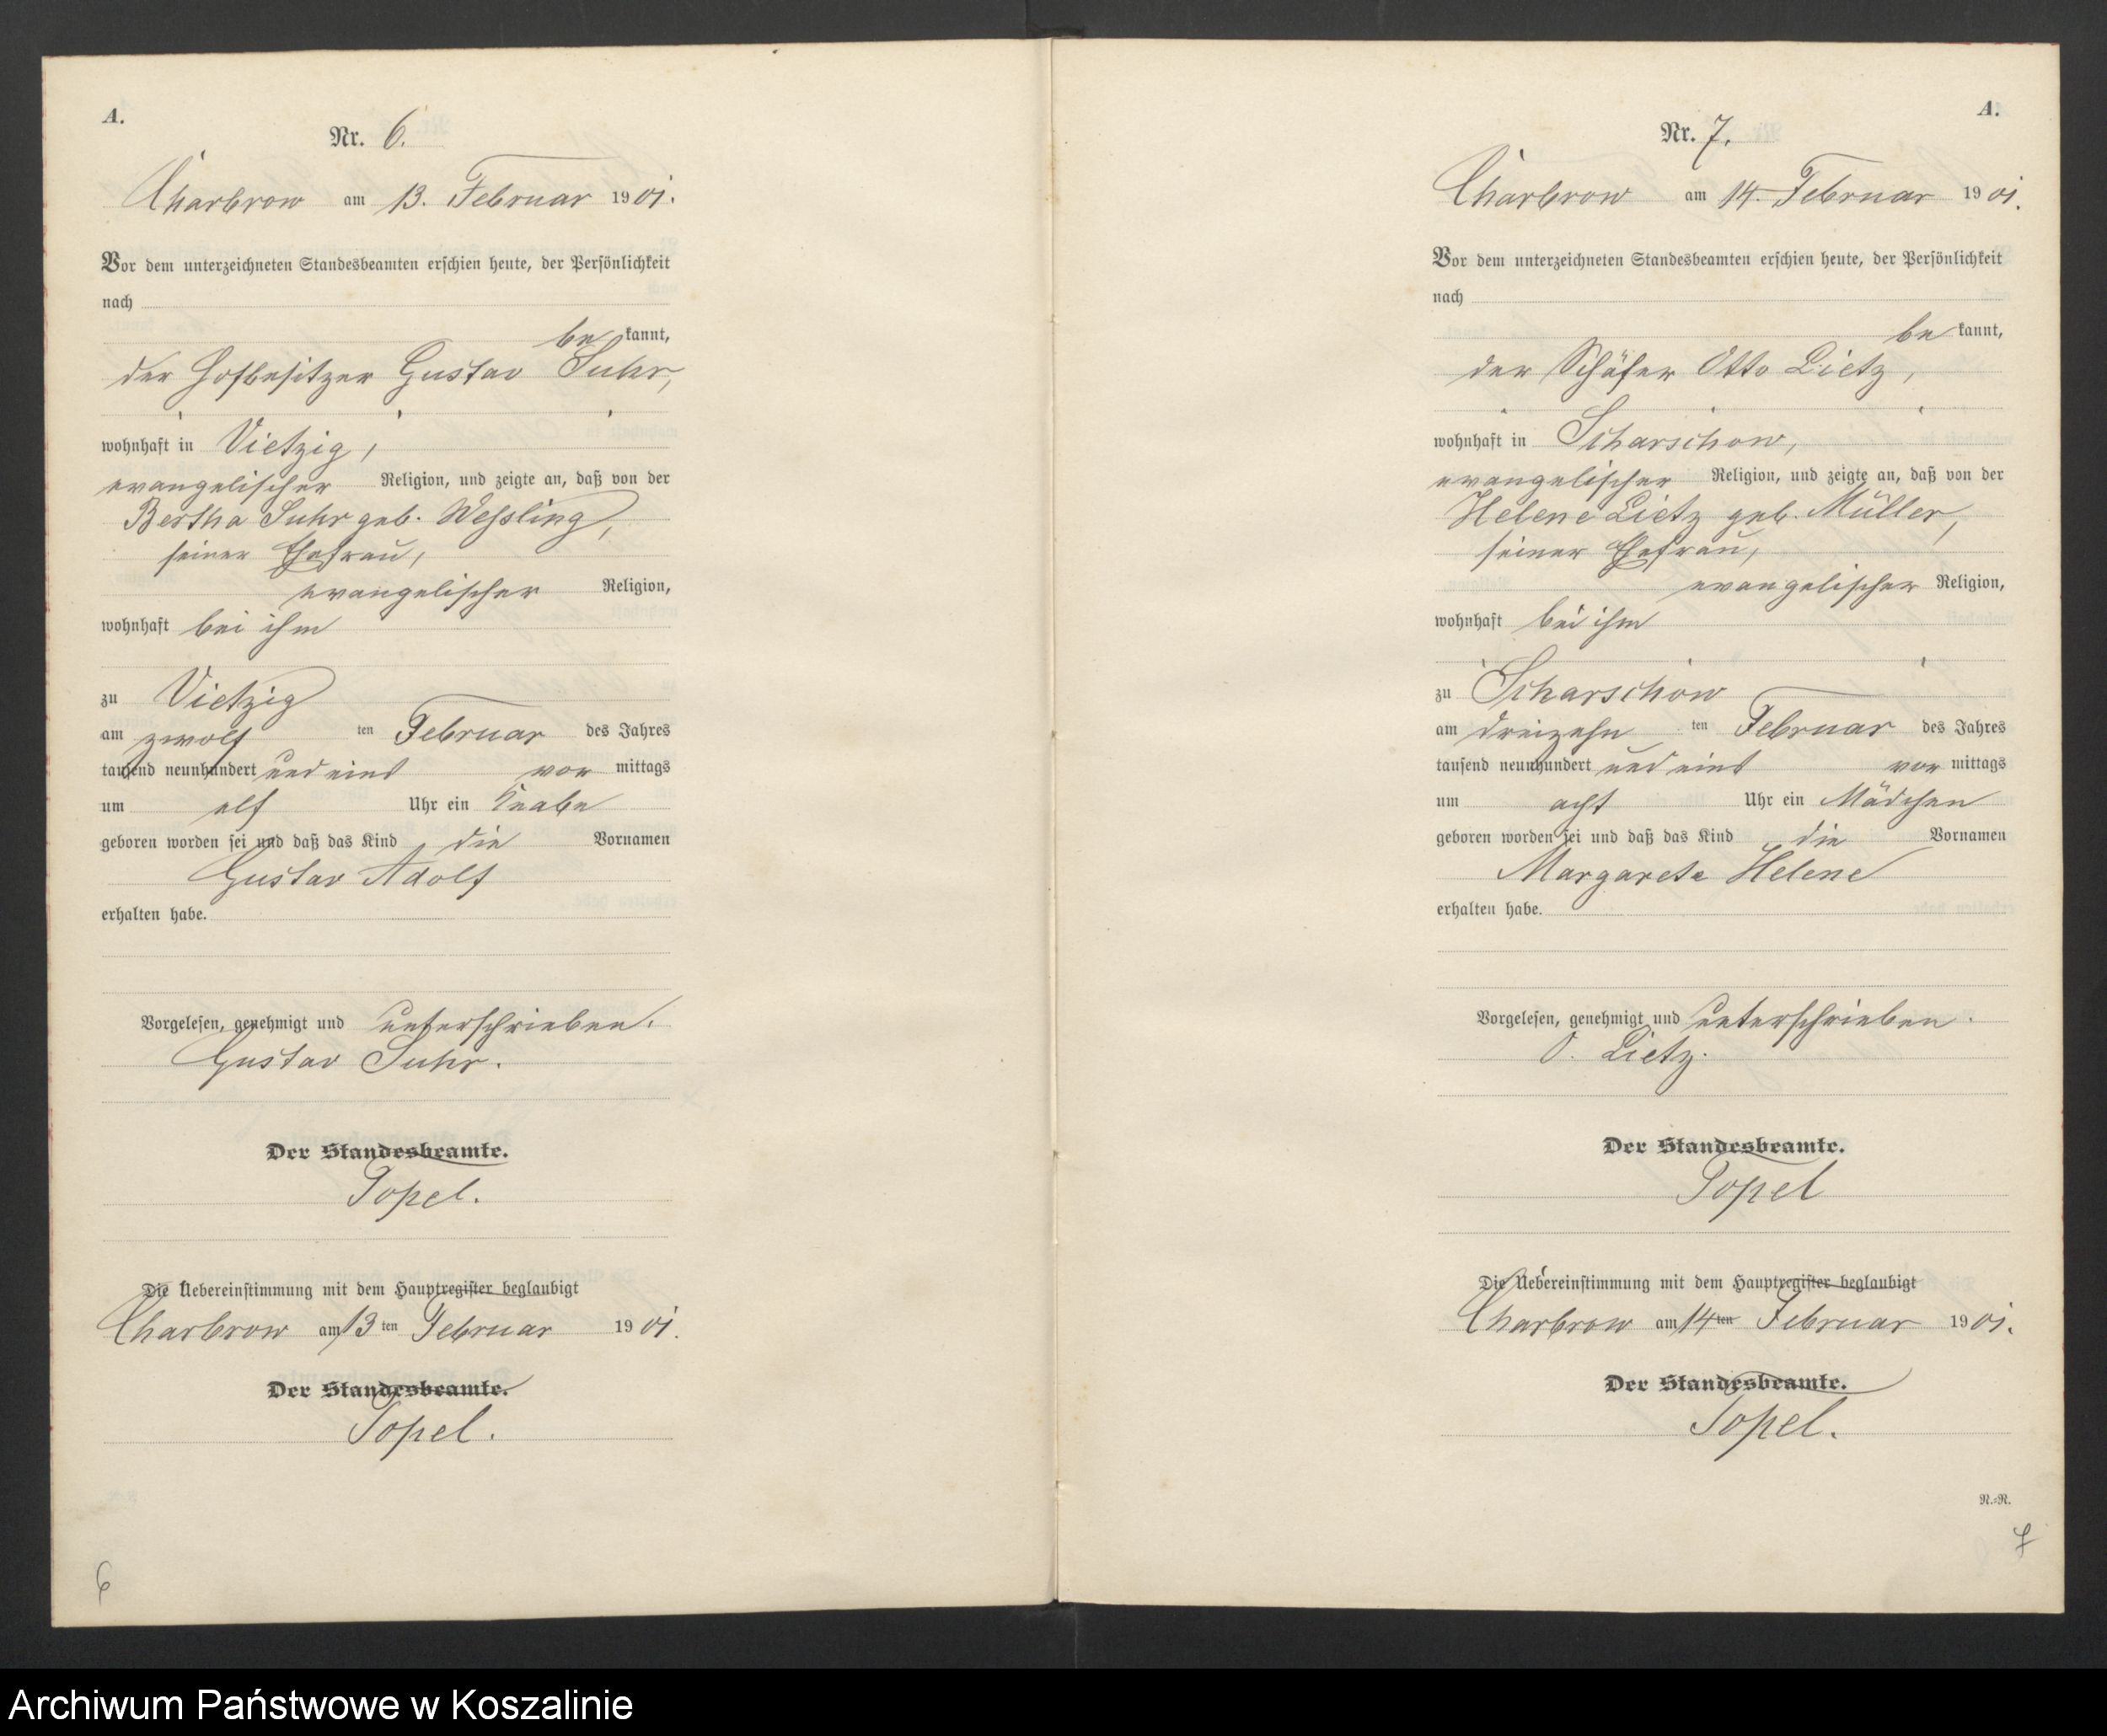 A.
Nr. 6.
Charbrow am 13. Februar 1901.
Vor dem unterzeichneten Standesbeamten erschien heute, der Persönlichkeit
nach
be kannt,
der Hofbesitzer Gustav Suhr,
wohnhaft in Vietzig,
evangelischer Religion, und zeigte an, daß von der
Bertha Suhr geb. Weßling,
seiner Ehefrau,
evangelischer Religion,
wohnhaft bei ihm
zu Vietzig
am zwölf ten Februar des Jahres
tausend neunhundert und eins vor mittags
um elf Uhr ein Knabe
geboren worden sei und daß das Kind die Vornamen
Gustav Adolf
erhalten habe.
Vorgelesen, genehmigt und unterschrieben.
Gustav Suhr.
Der Standesbeamte.
Topel.
Die Uebereinstimmung mit dem Hauptregister beglaubigt
Charbrow am 13 ten Februar 1901.
Der Standesbeamte.
Topel.
6
A.
Nr. 7.
Charbrow am 14. Februar 1901.
Vor dem unterzeichneten Standesbeamten erschien heute, der Persönlichkeit
nach
be kannt,
der Schäfer Otto Lietz,
wohnhaft in Scharschow,
evangelischer Religion, und zeigte an, daß von der
Helene Lietz geb. Müller,
seiner Ehefrau,
evangelischer Religion,
wohnhaft bei ihm
zu Scharschow
am dreizehn ten Februar des Jahres
tausend neunhundert und eins vor mittags
um acht Uhr ein Mädchen
geboren worden sei und daß das Kind die Vornamen
Margarete Helene
erhalten habe.
Vorgelesen, genehmigt und unterschrieben.
O. Lietz.
Der Standesbeamte.
Topel
Die Uebereinstimmung mit dem Hauptregister beglaubigt
Charbrow am 14 ten Februar 1901.
Der Standesbeamte.
Topel.
R.=R.
7
Archiwum Państwowe w Koszalinie